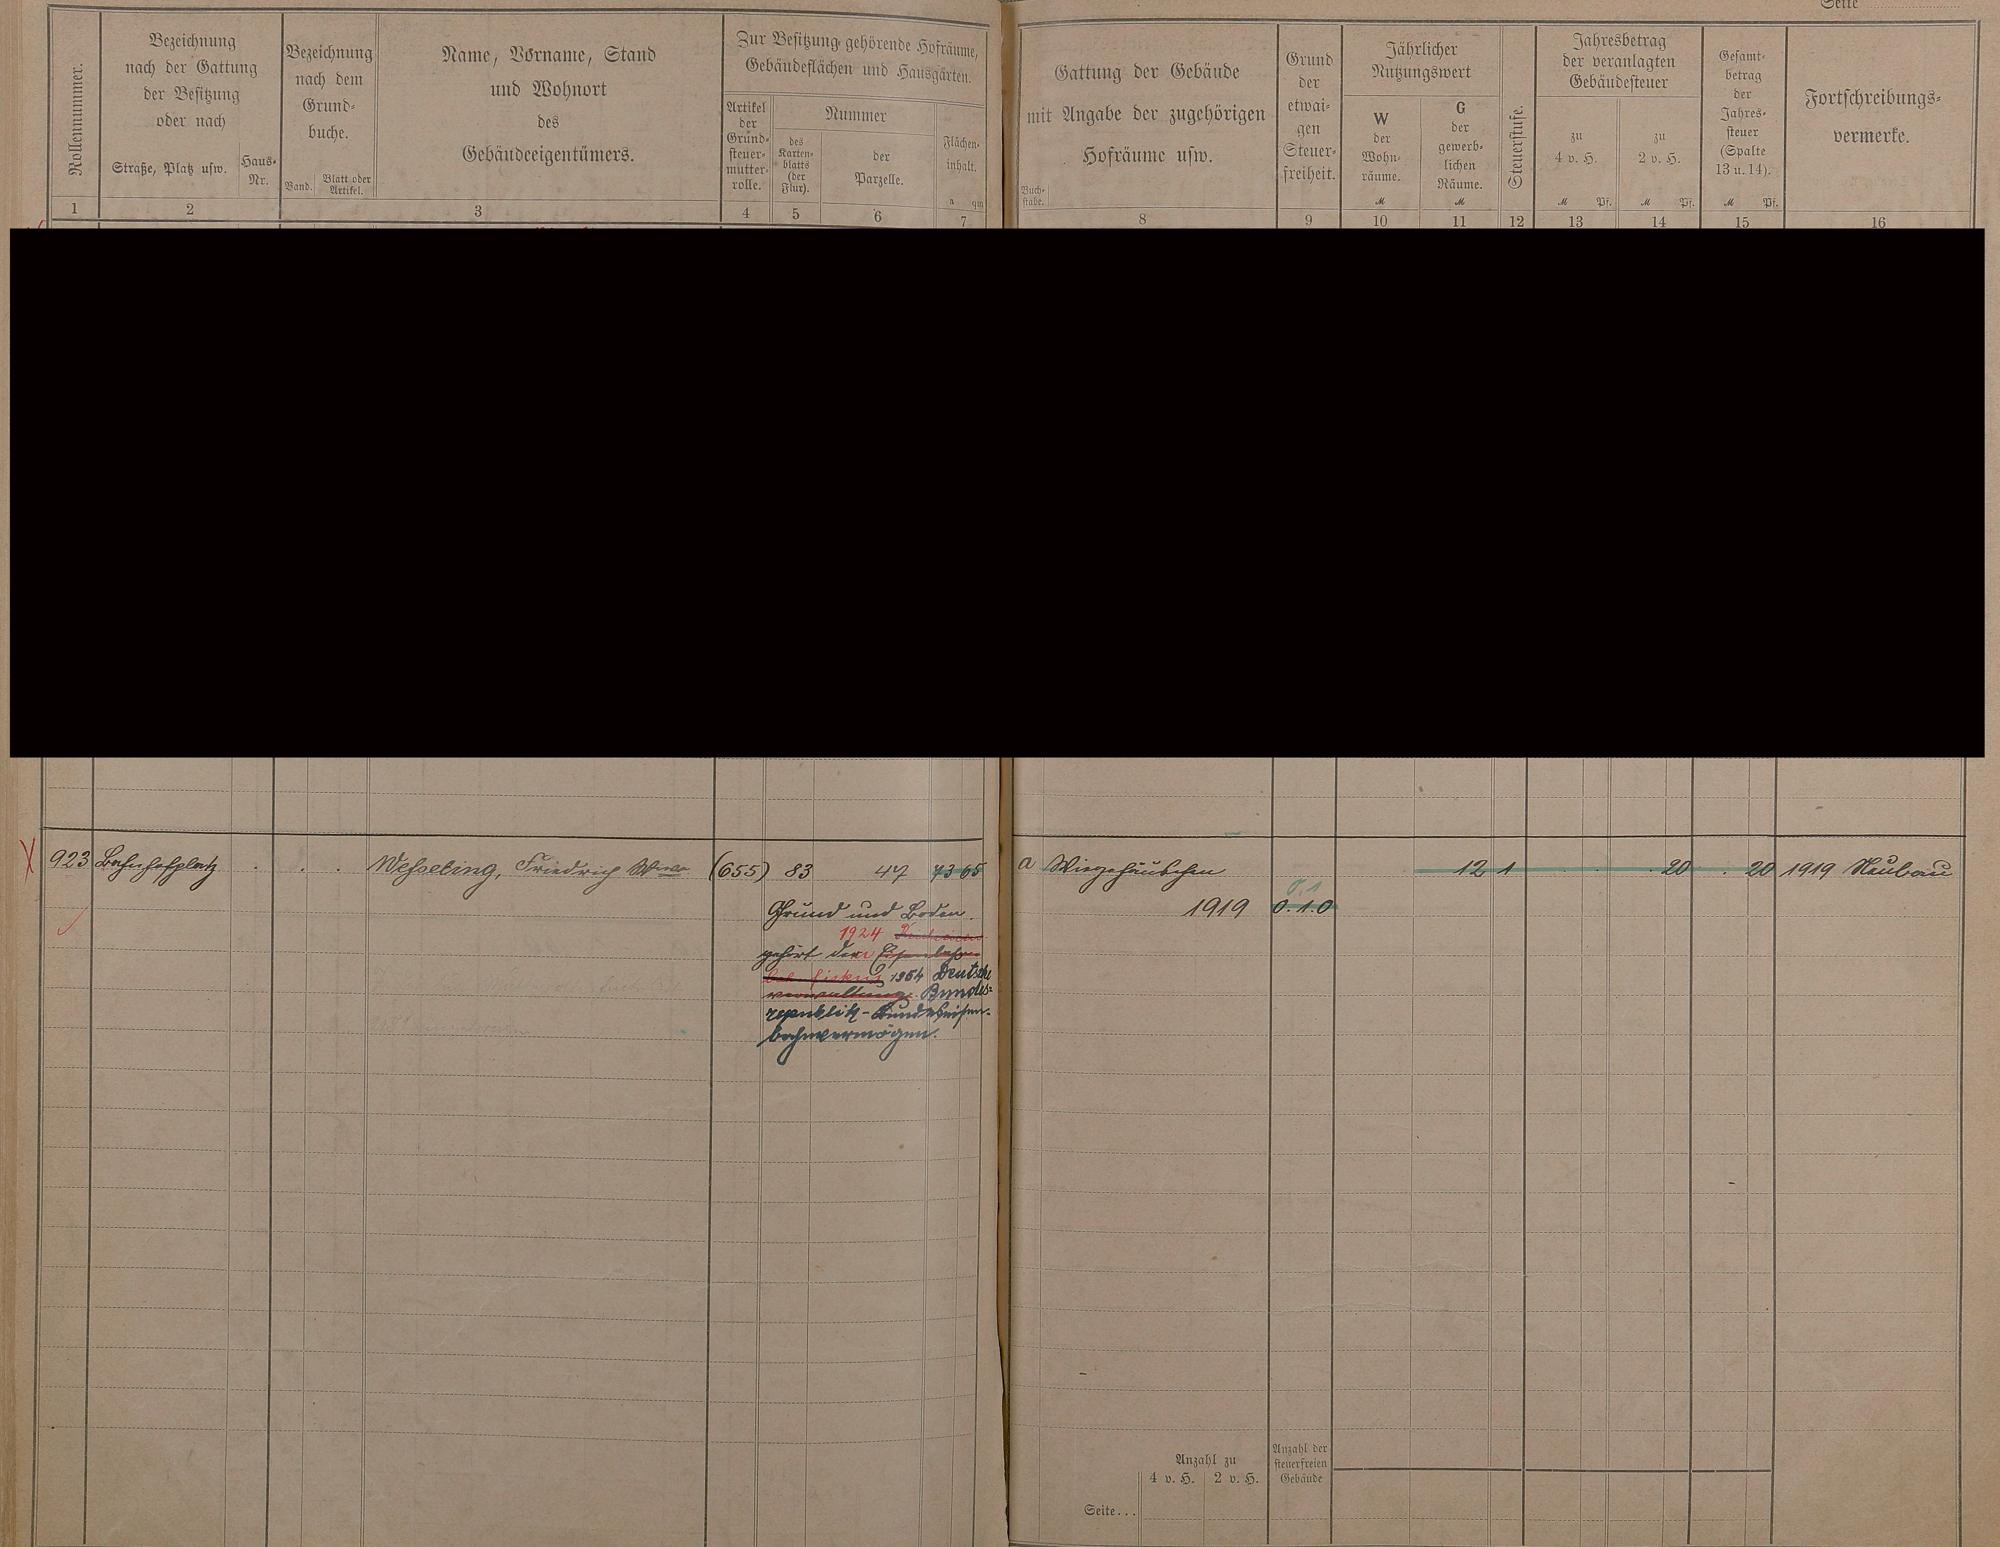 Seite
Rollennummer.
Bezeichnung
nach der Gattung
der Besitzung
oder nach
Straße, Platz usw.
Haus-
Nr.
Bezeichnung
nach dem
Grund-
buche.
Band.
Blatt oder
Artikel.
Name, Vorname, Stand
und Wohnort
des
Gebäudeeigentümers.
Zur Besitzung gehörende Hofräume,
Gebäudeflächen und Hausgärten.
Artikel
der
Grund-
steuer-
mutter-
rolle.
Nummer
des
Karten-
blatts
(der
Flur).
der
Parzelle.
Flächen-
inhalt.
a qm
1 2 3 4 5 6 7
Gattung der Gebäude
mit Angabe der zugehörigen
Hofräume usw.
Buch-
stabe.
Grund
der
etwai-
gen
Steuer-
freiheit.
Jährlicher
Nutzungswert
W
der
Wohn-
räume.
M
G
der
gewerb-
lichen
Räume.
M
Steuerstufe.
Jahresbetrag
der veranlagten
Gebäudesteuer
zu
4 v. H.
M Pf.
zu
2 v. H.
M Pf.
Gesamt-
betrag
der
Jahres-
steuer
(Spalte
13 u. 14).
M Pf.
Fortschreibungs-
vermerke.
8 9 10 11 12 13 14 15 16
923 Bahnhofplatz . . . Wesseling, Friedrich Wwe (655) 83 47 73 65
Grund und Boden
1924
gehört der Eisenbahn-
1954 Deutsche
verwaltung. Bundes-
republik - Bundeseisen-
bahnvermögen.
a Wiegehäuschen 12 1 . . . 20 . 20 1919 Neubau
0.1
1919 0.1.0
Anzahl zu
4 v. H. 2 v. H.
Anzahl der
steuerfreien
Gebäude
Seite...